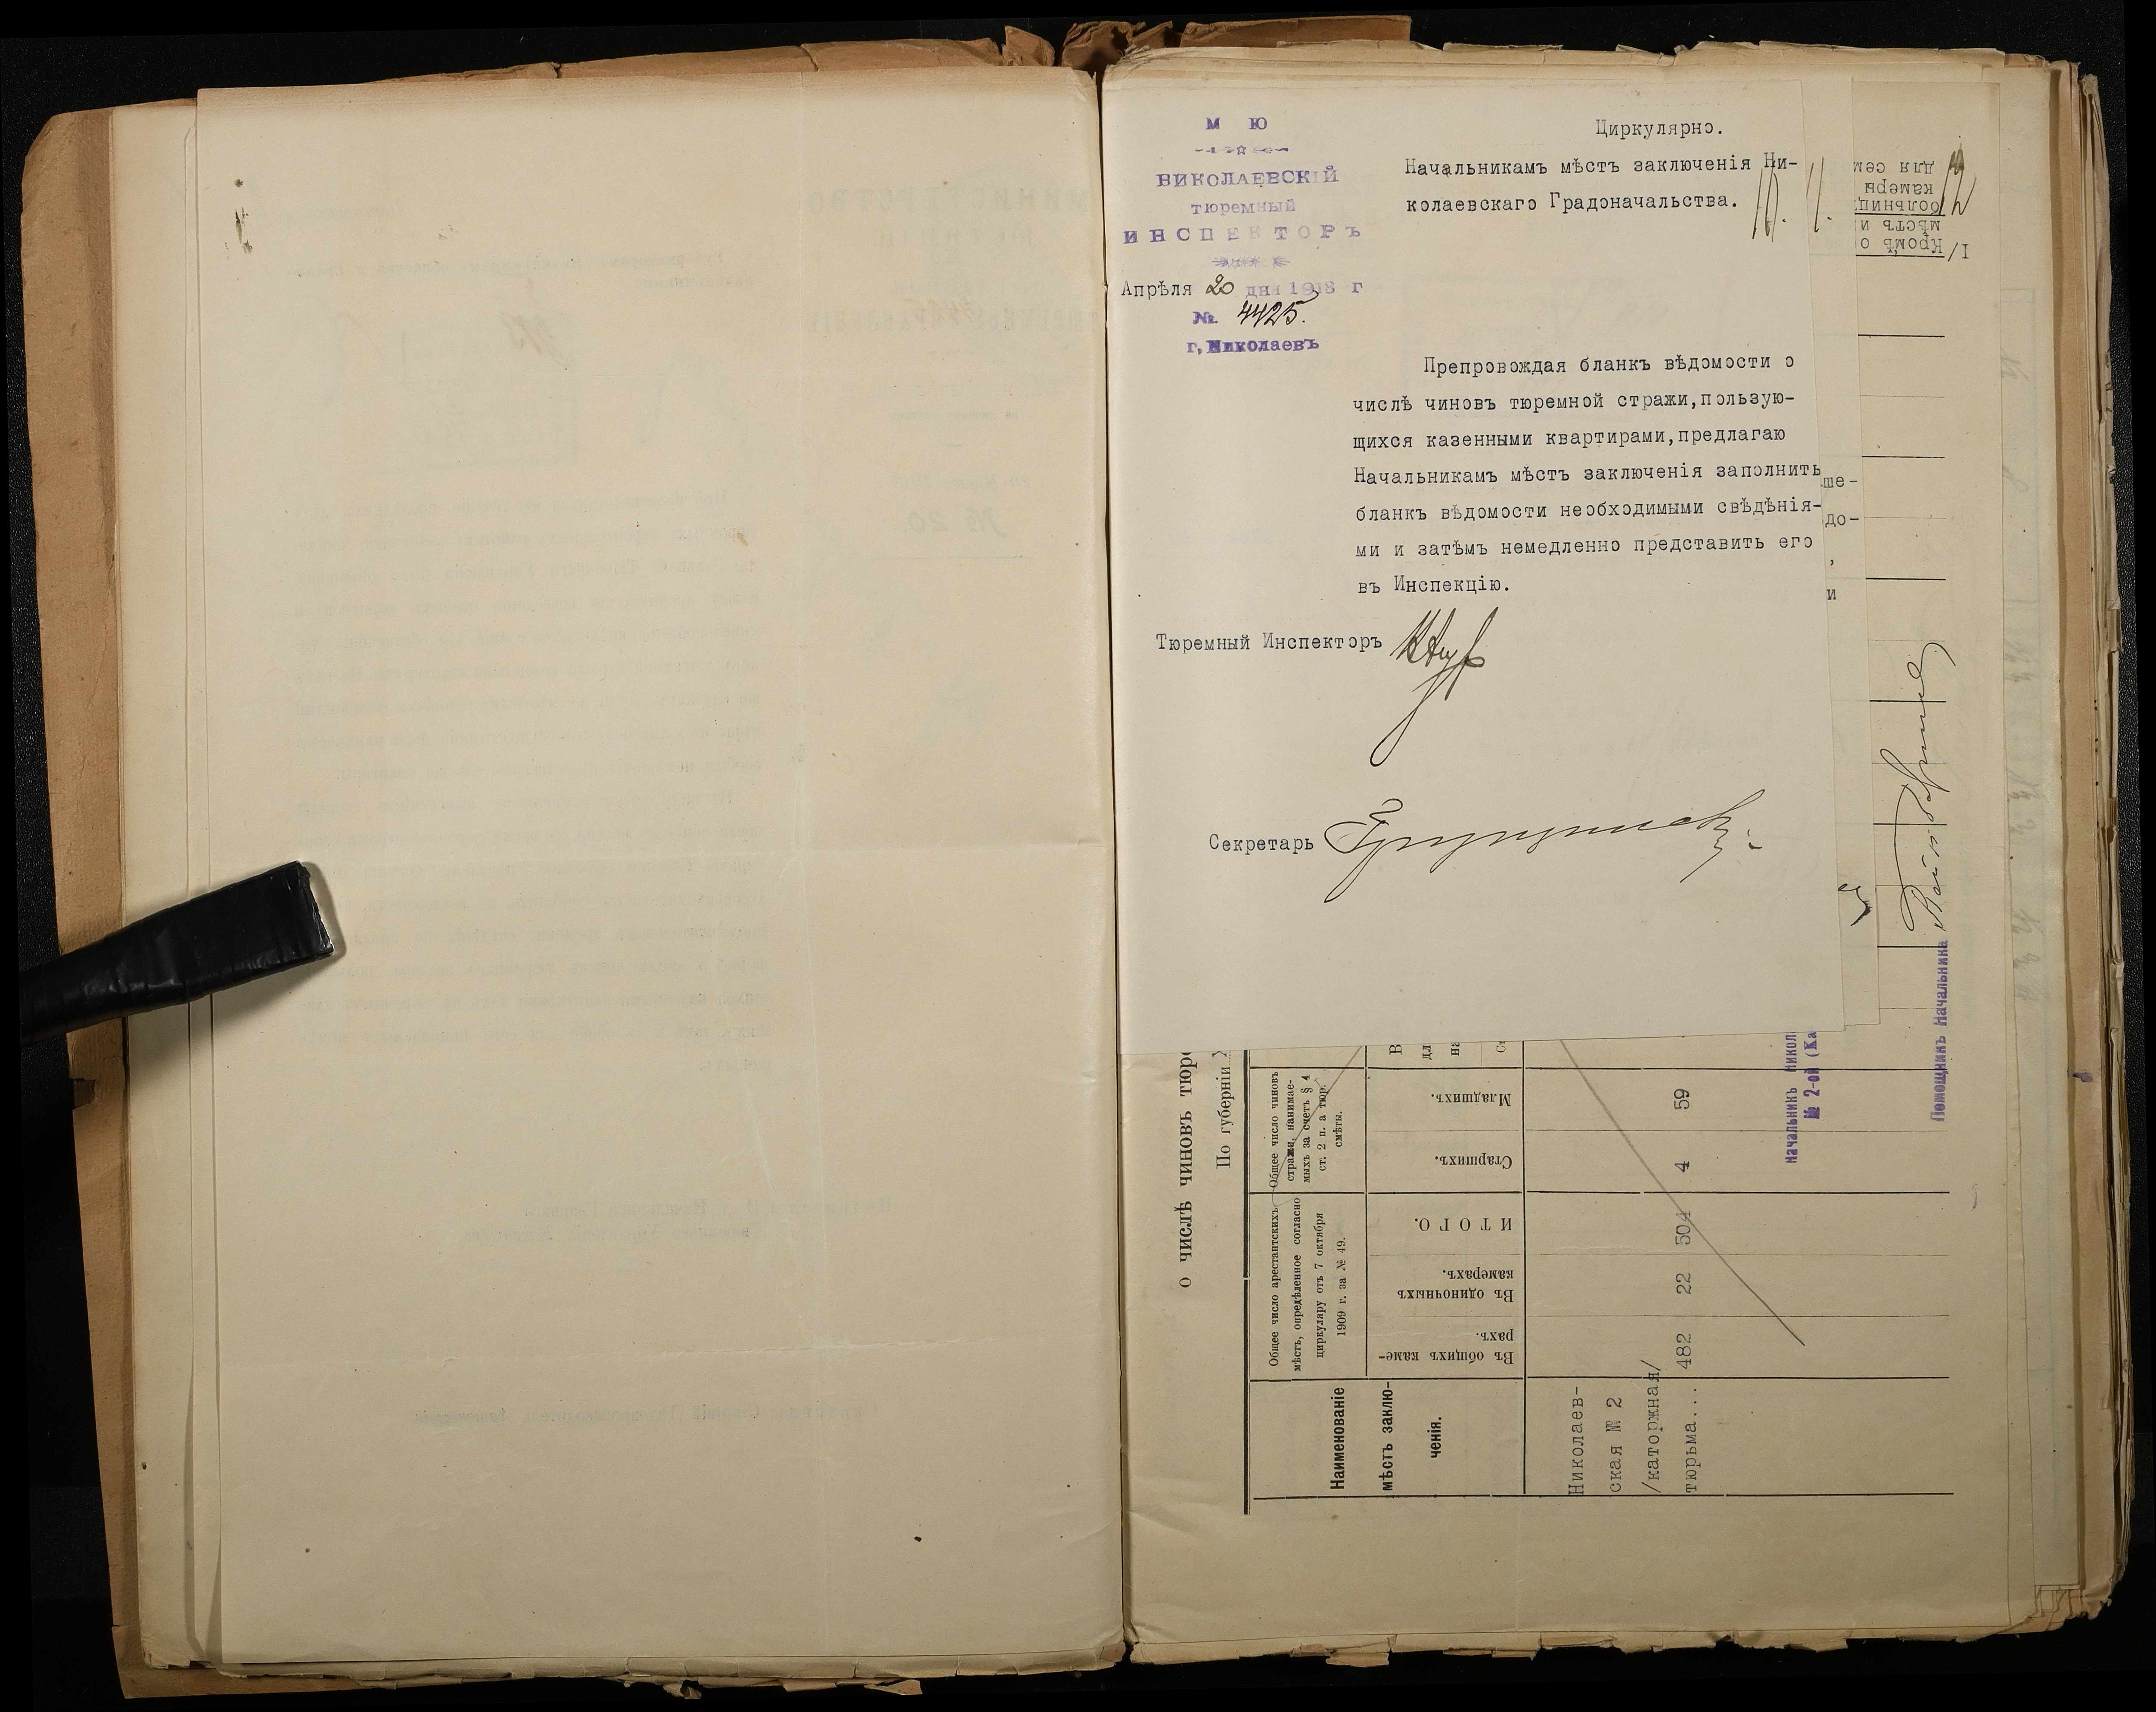 М Ю
НИКОЛАЕВСКІЙ
тюремный
ИНСПЕКТОРЪ
Апрѣля 20 дня 1913 г
№ 4425.
г. Николаевъ
Циркулярно.
Начальникамъ мѣстъ заключенія Ни-
колаевскаго Градоначальства.
Препровождая бланкъ вѣдомости о
числѣ чиновъ тюремной стражи,пользую-
щихся казенными квартирами,предлагаю
Начальникамъ мѣстъ заключенія заполнить
бланкъ вѣдомости необходимыми свѣдѣнія-
ми и затѣмъ немедленно представить его
въ Инспекцію.
Тюремный Инспекторъ
Секретарь
ше-
до-
,
и
12
1/ Кромѣ о
мѣстъ и
больниц
камеры
для сем
о числѣ чиновъ тюре
По губерніи
Наименованіе
мѣстъ заклю-
ченія.
Общее число арестантскихъ
мѣстъ, опредѣленное согласно
циркуляру отъ 7 октября
1909 г. за № 49.
Въ общихъ каме-
рахъ.
Въ одиночныхъ
камерахъ.
ИТОГО.
Общее число чиновъ
стражи, нанимае-
мыхъ за счетъ § 4
ст. 2 п. а тюр.
смѣты.
Старшихъ.
Младшихъ.
Николаев-
ская № 2
/каторжная/
тюрьма... 482 22 504 4 59
Начальникъ Никол
№ 2-ой (Ка
Помощникъ Начальника